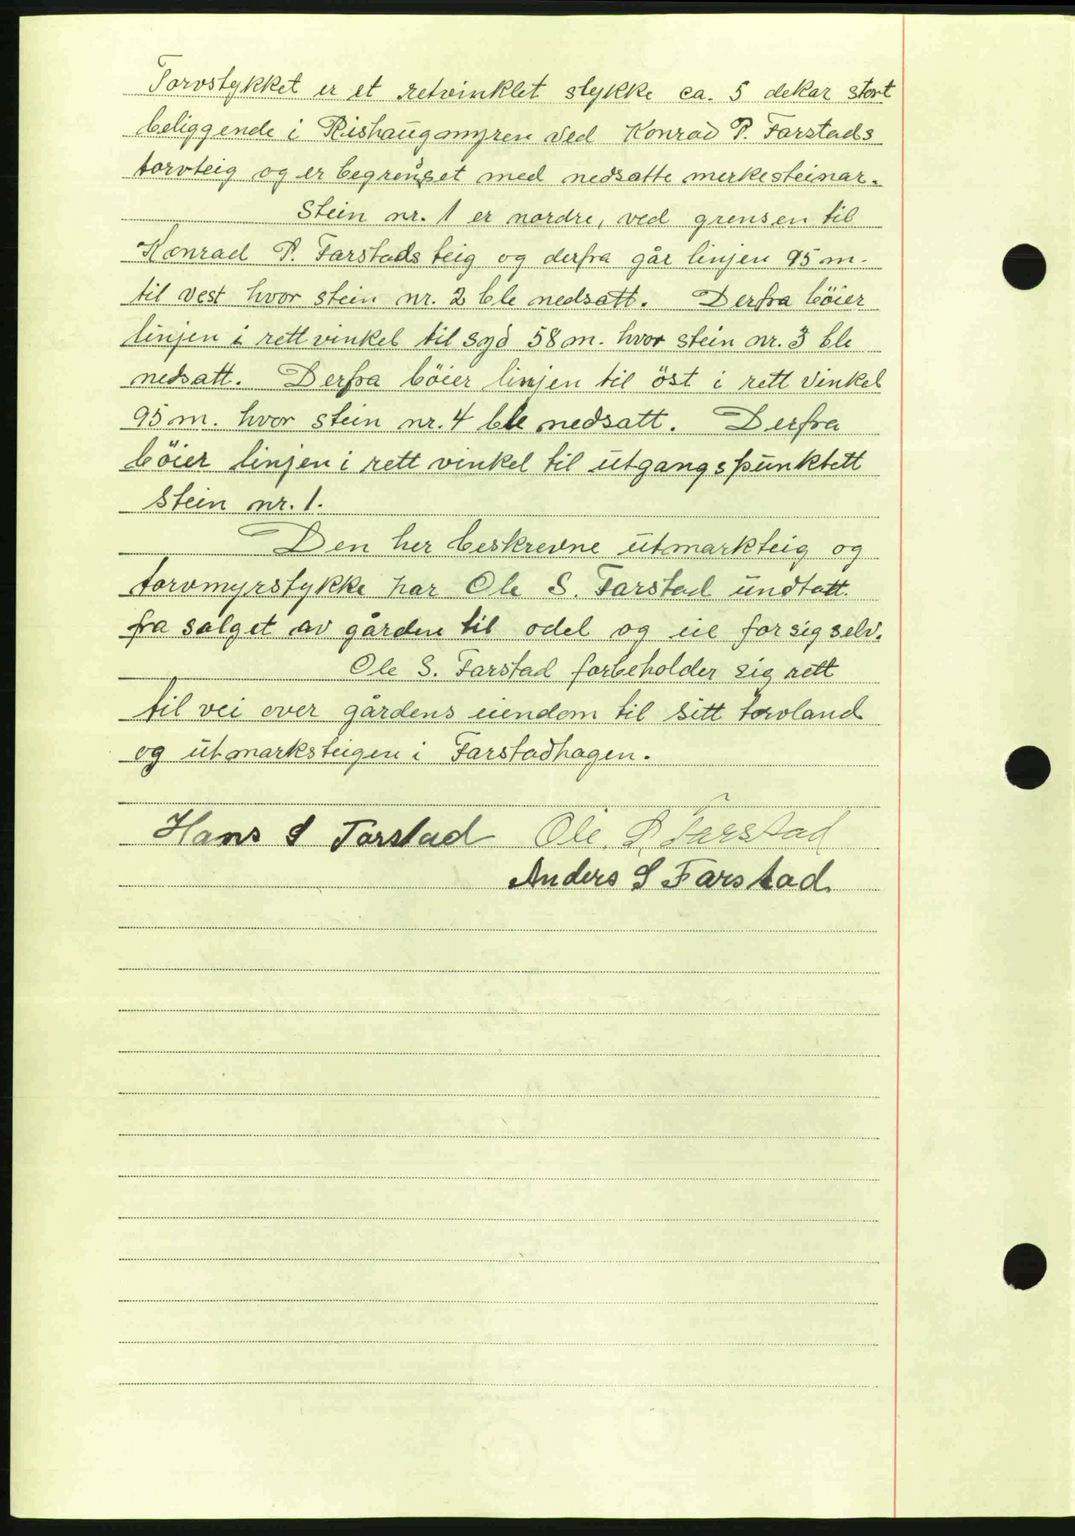 Torvstykket er et retvinklet stykke ca. 5 dekar stort
beliggende i Rishaugmyren ved Konrad P. Farstads
torvteig og er begrenset med nedsatte merkesteinar.
Stein nr. 1 er nordre, ved grensen til
Konrad P. Farstads teig og derfra går linjen 95 m.
til vest hvor stein nr. 2 ble nedsatt. Derfra böier
linjen i rett vinkel til syd 58 m. hvor stein nr. 3 ble
nedsatt. Derfra böier linjen til öst i rett vinkel
95 m. hvor stein nr. 4 ble nedsatt. Derfra
böier linjen i rett vinkel til utgangspunktett
stein nr. 1.
Den her beskrevne utmarkteig og
torvmyrstykke har Ole S. Farstad undtatt
fra salget av gården til odel og eie for sig selv.
Ole S. Farstad forbeholder sig rett
til vei over gårdens eiendom til sitt torvland
og utmarksteigen i Farstadhagen.
Hans S Farstad Ole. S. Farstad
Anders S Farstad.